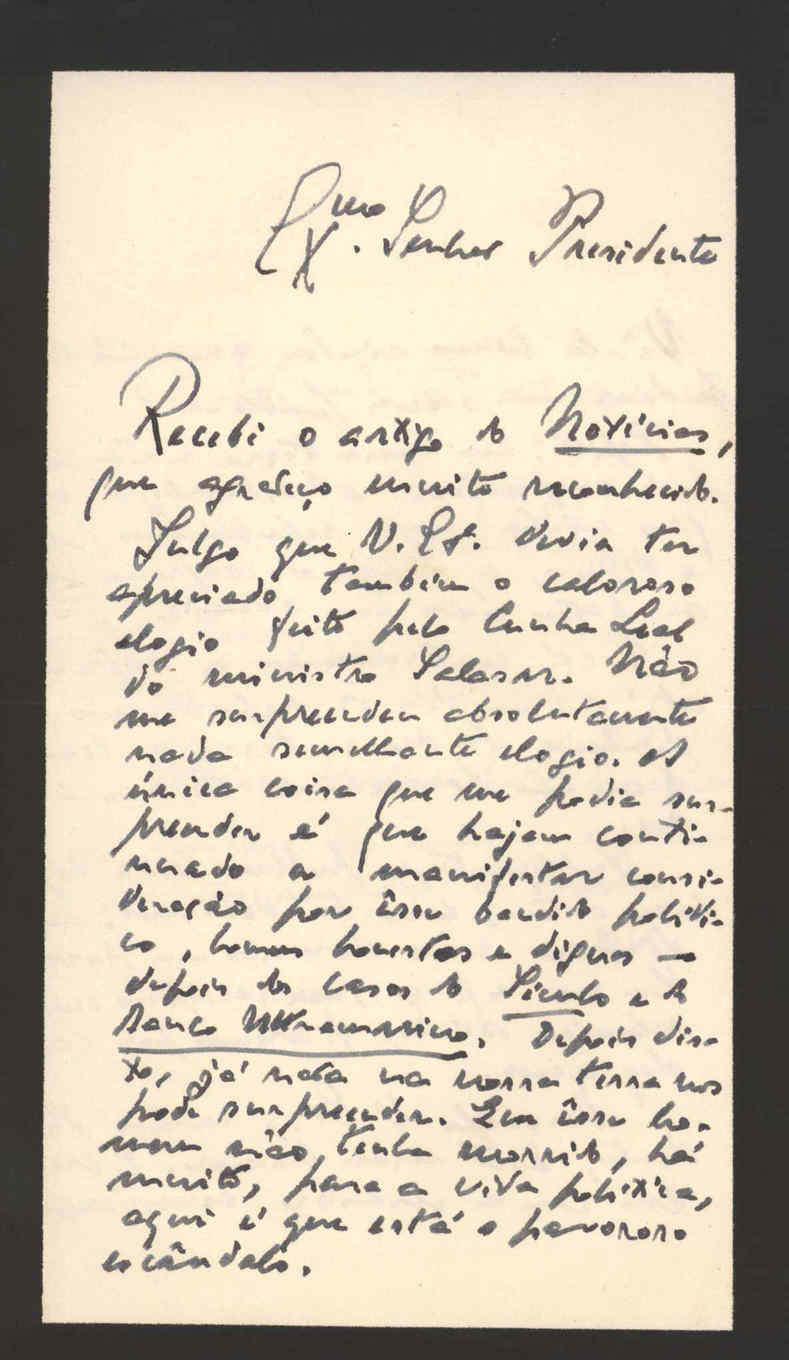 Exmo. Senhor Presidente
Recebi o artigo do Notícias,
que agradeço muito reconhecido.
Julgo que V. Ex. devia ter
apreciado também o caloroso
elogio feito pelo Cunha Leal
do ministro Salazar. Não
me surpreendeu absolutamente
nada semelhante elogio. A
única coisa que me podia sur-
prender é que hajam conti-
nuado a manifestar consi-
deração por êsse bandido políti-
co, homens honestos e dignos —
depois dos casos do Século e do
Banco Ultramarino. Depois dis-
to, já nada na nossa terra nos
pode surpreender. Que êsse ho-
mem não tenha morrido, há
muito, para a vida política,
aqui é que está o pavoroso
escândalo.